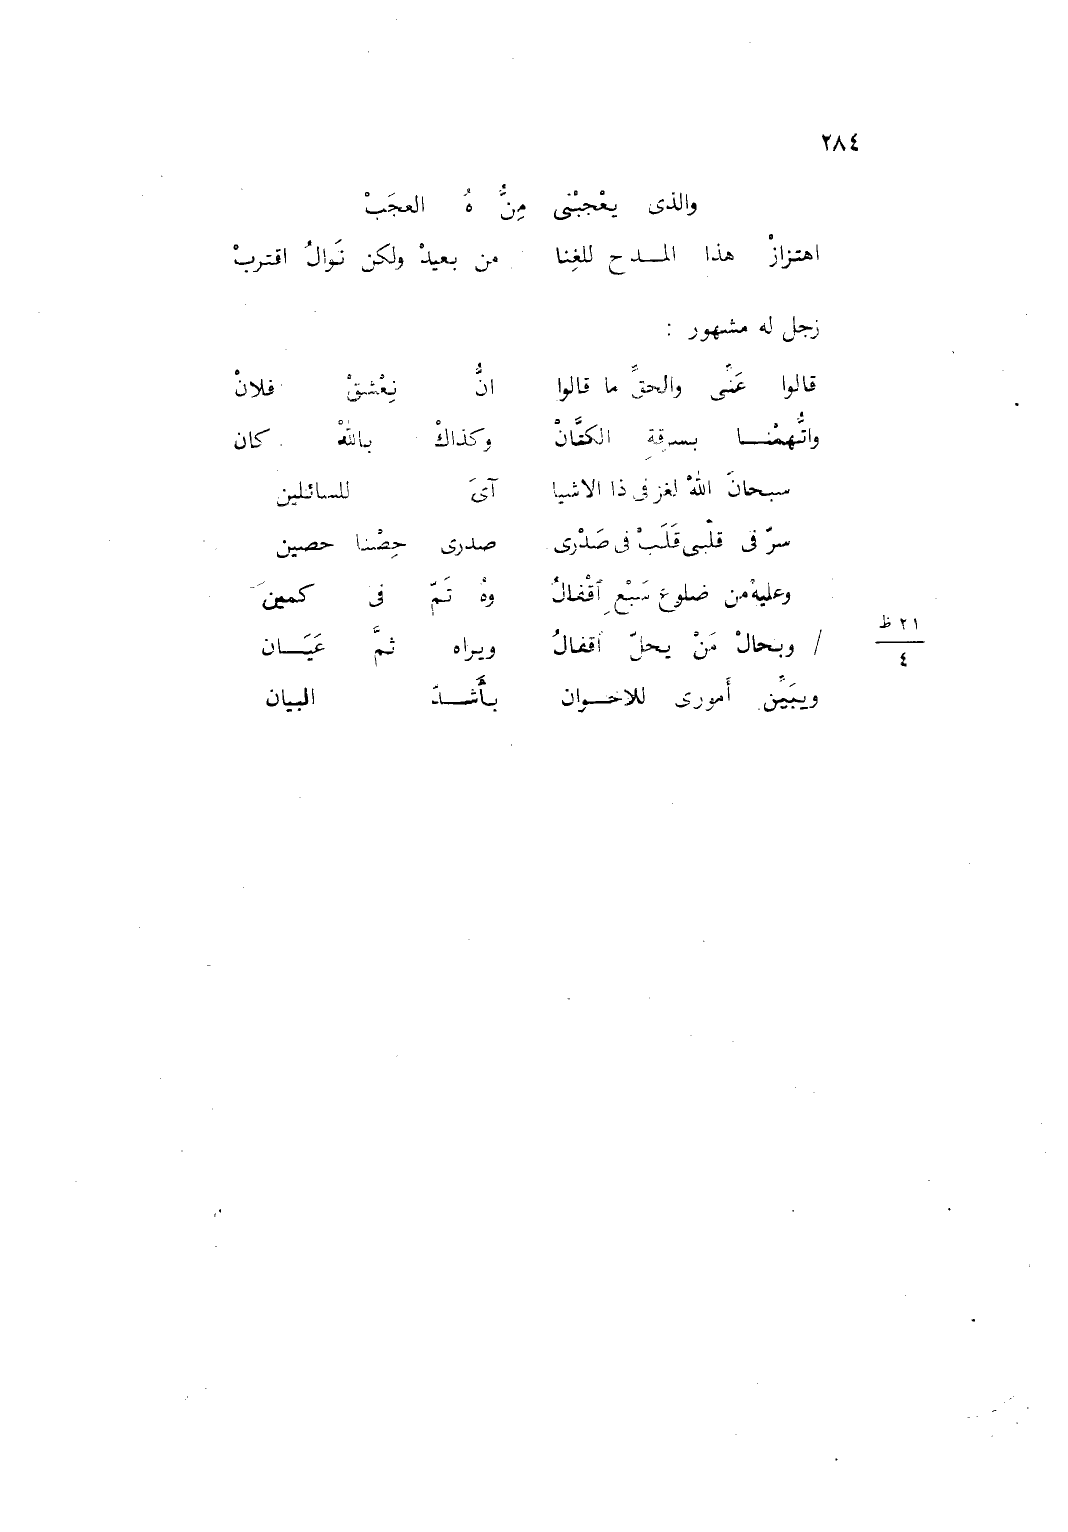 ٢٨٤
والذى يعْجبْنى مِنُّ هُ العجَبْ
اهتزازْ هذا المـــدح للغِنا من بعيدْ ولكن نَوالُ اقتربْ
زجل له مشهور :
قالوا عَنِّى والحقَّ ما قالوا انُّ نِعْشقْ فلانْ
واتُّهمْنـــا بسرقةِ الكتَّانْ وكذاكْ باللهْ كان
سبحانَ اللهْ لغز فى ذا الاشيا آىَ للسائلين
سرّ فى قلْبى قَلَبْ فى صَدْرى صدرى حِصْنا حصين
وعليهْ من ضلوع سَبْعِ اَقْفالُ وهُ تَمّ فى كمين
/ وبحالْ مَنْ يحلّ أقفالُ ويراه ثمَّ عَيَـــان
ويبَيِّن أمورى للاخـــوان بأَشـــدّ البيان
٢١ ظ
٤